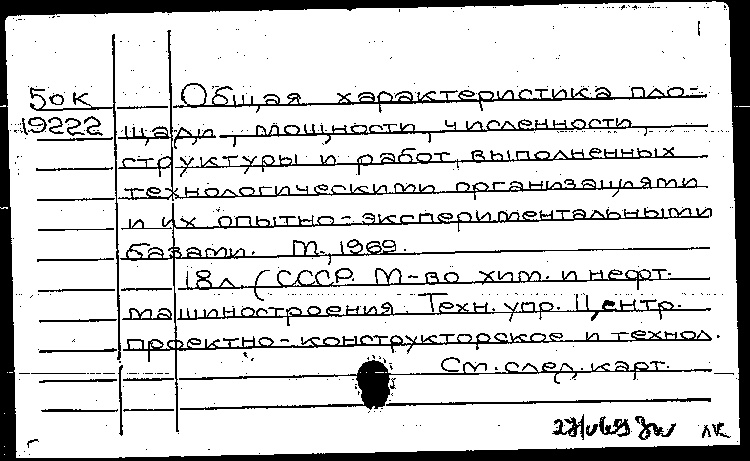 50К Общая характеристика пло-
19222 щади, мощности, численности,
структуры и работ, выполненных
технологическими организациями
и их опытно-экспериментальными
базами. М., 1969.
18л (СССР. М-во хим. и нефт.
машиностроения. Техн. упр. Центр.
проектно-конструкторское и технол.
См. след. карт.
ЛК